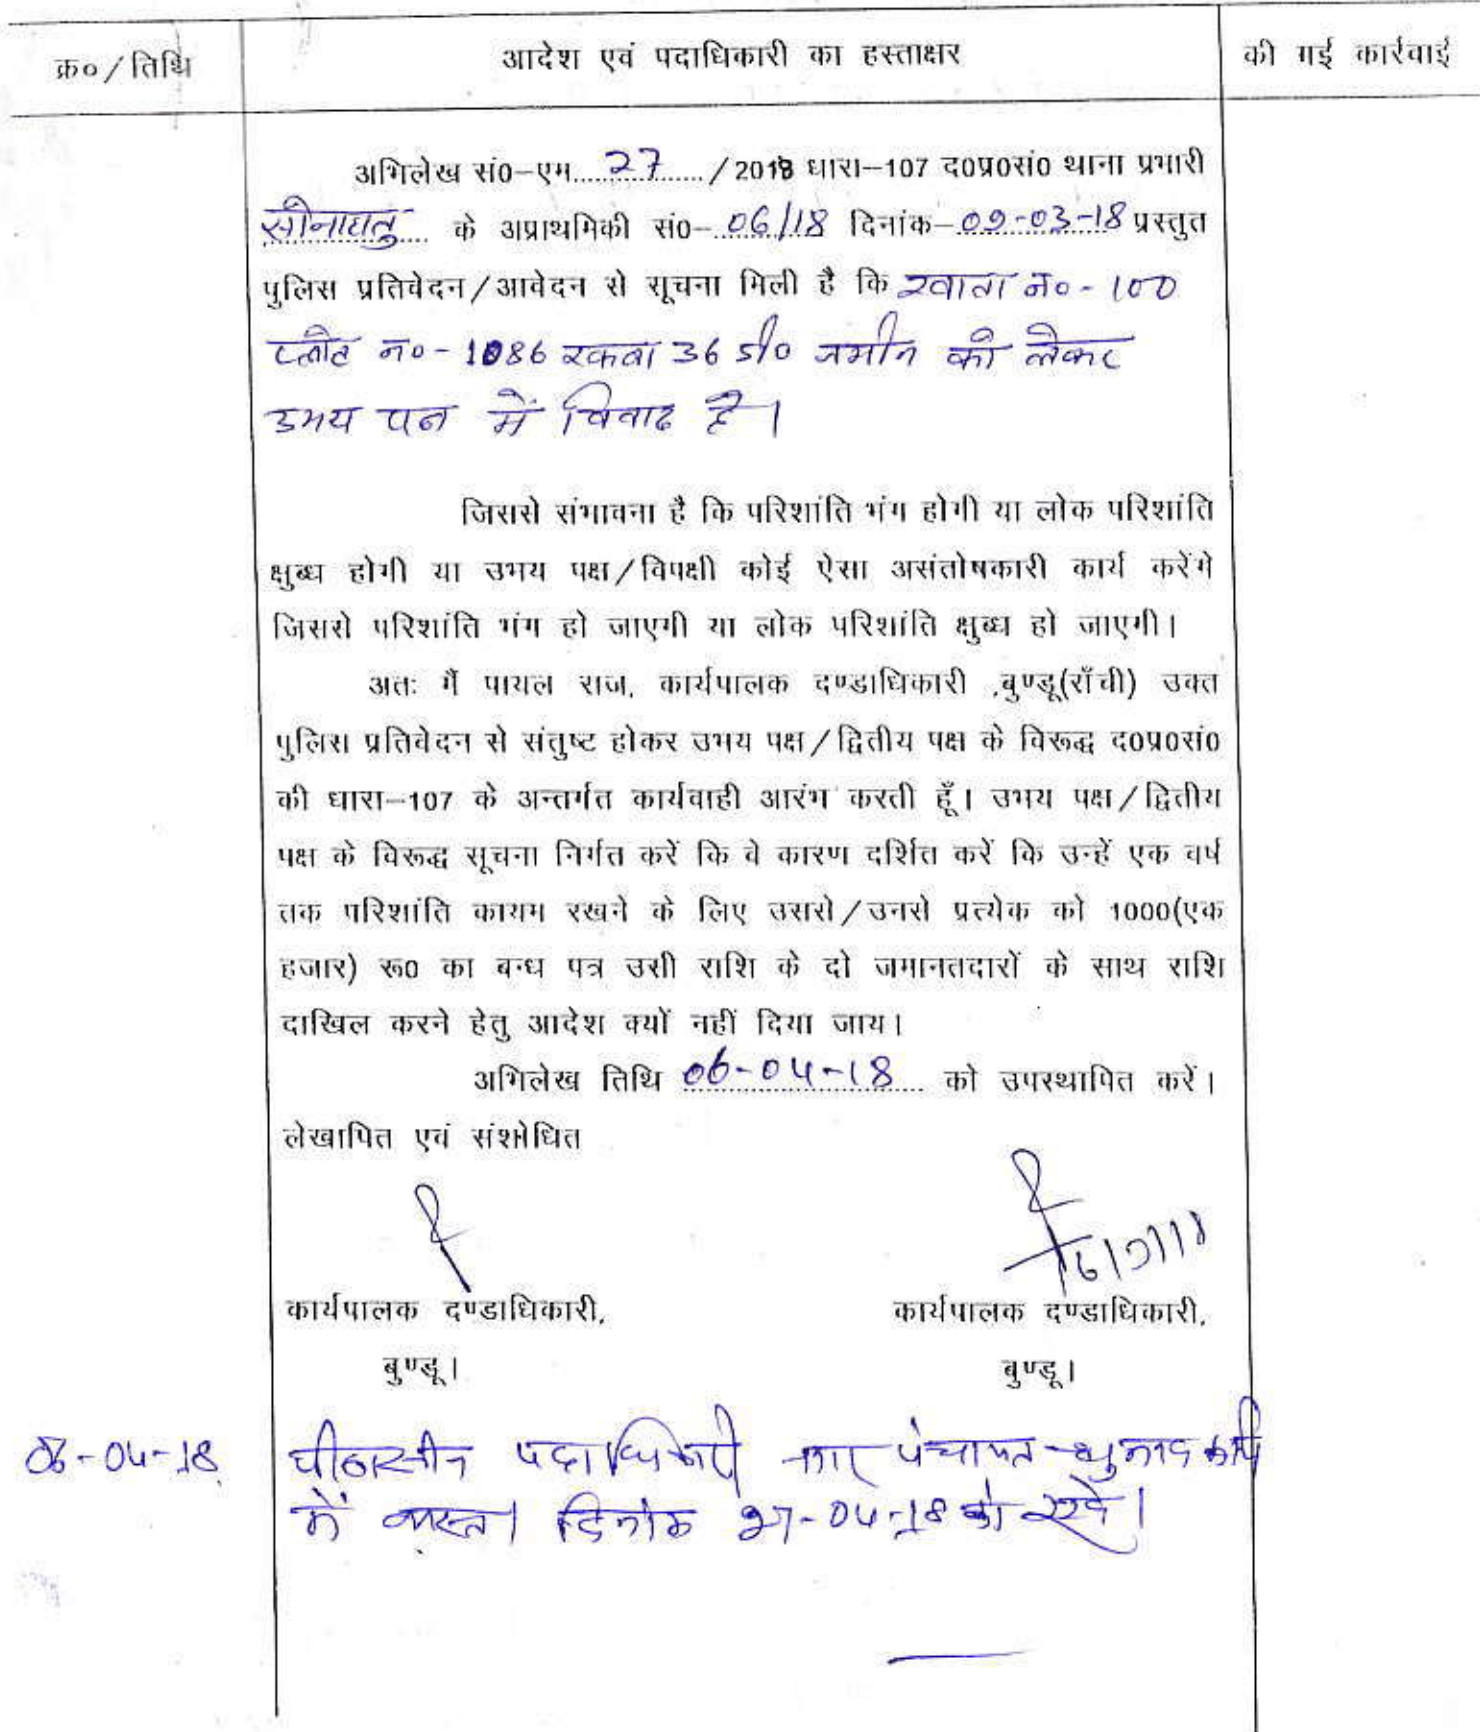 क्र०/तिथि
आदेश एवं पदाधिकारी का हस्ताक्षर
की गई कार्रवाई
अभिलेख सं0–एम 27 /2018 धारा–107 द0प्र0सं0 थाना प्रभारी
सोनाहातु के अप्राथमिकी सं0– 06/18 दिनांक– 09-03-18 प्रस्तुत
पुलिस प्रतिवेदन/आवेदन से सूचना मिली है कि खाता नं०-100
प्लौट नं०-1086 रकवा 36 डी० जमीन को लेकर
उभय पक्ष में विवाद है।
जिससे संभावना है कि परिशांति भंग होगी या लोक परिशांति
क्षुब्ध होगी या उभय पक्ष/विपक्षी कोई ऐसा असंतोषकारी कार्य करेंगे
जिससे परिशांति भंग हो जाएगी या लोक परिशांति क्षुब्ध हो जाएगी।
अतः मैं पायल राज, कार्यपालक दण्डाधिकारी ,बुण्डू(राँची) उक्त
पुलिस प्रतिवेदन से संतुष्ट होकर उभय पक्ष/द्वितीय पक्ष के विरूद्ध द0प्र0सं0
की धारा–107 के अन्तर्गत कार्यवाही आरंभ करती हूँ। उभय पक्ष/द्वितीय
पक्ष के विरूद्ध सूचना निर्गत करें कि वे कारण दर्शित करें कि उन्हें एक वर्ष
तक परिशांति कायम रखने के लिए उससे/उनसे प्रत्येक को 1000(एक
हजार) रू0 का बन्ध पत्र उसी राशि के दो जमानतदारों के साथ राशि
दाखिल करने हेतु आदेश क्यों नहीं दिया जाय।
अभिलेख तिथि 06-04-18 को उपस्थापित करें।
लेखापित एवं संशोधित
कार्यपालक दण्डाधिकारी,
बुण्डू।
कार्यपालक दण्डाधिकारी,
बुण्डू।
06-04-18
पीठासीन पदाधिकारी नगर पंचायत चुनाव कार्य
में व्यस्त। दिनांक 27-04-18 को रखें।